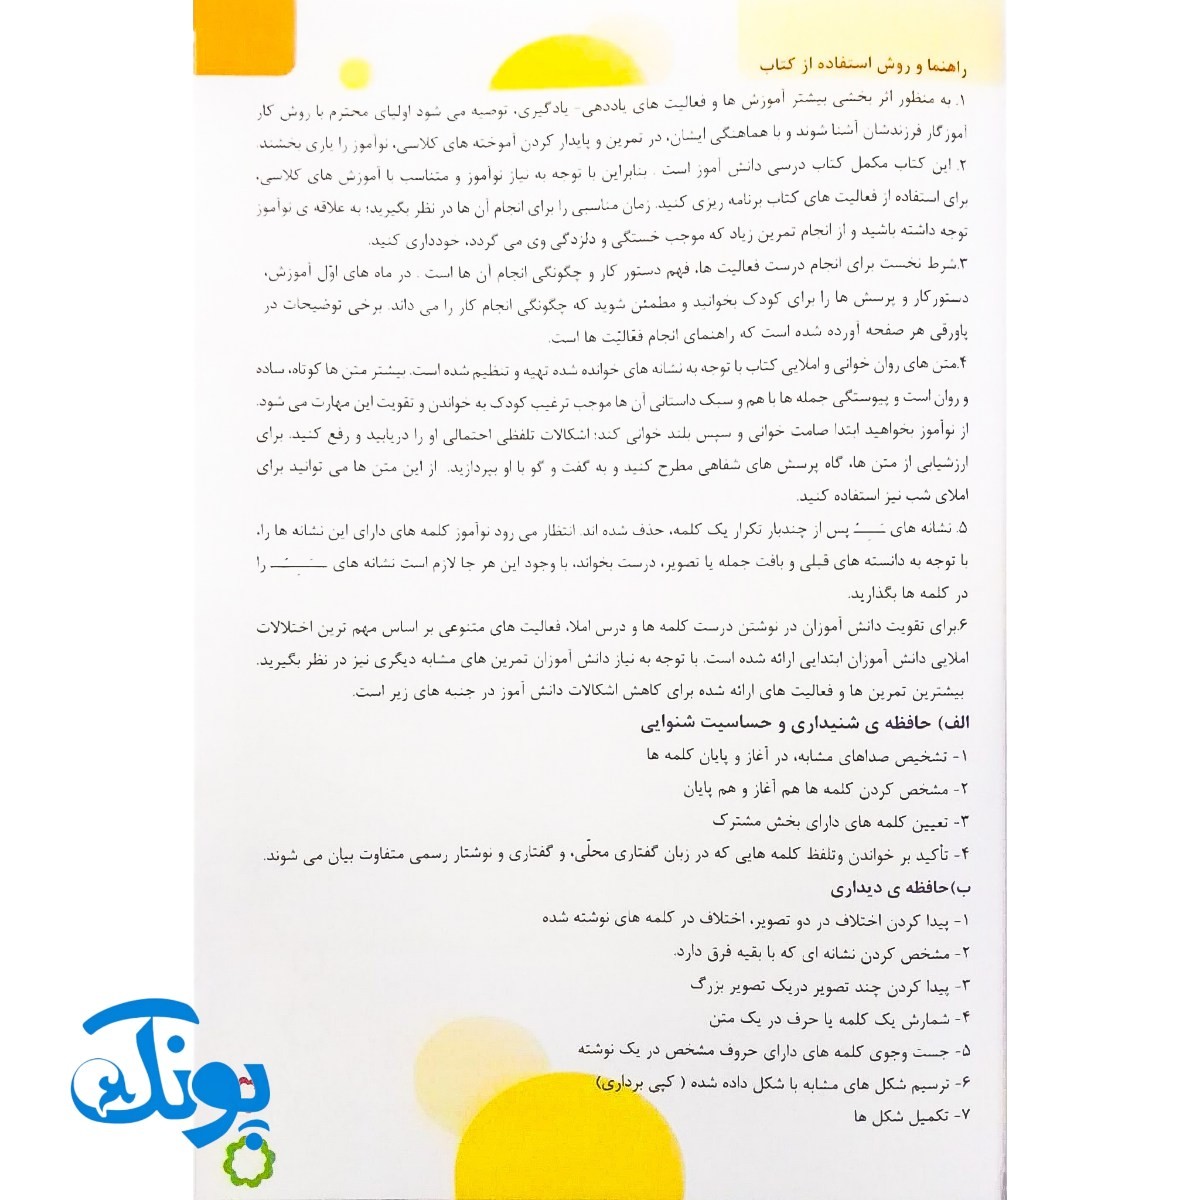 راهنما و روش استفاده از کتاب
۱. به منظور اثر بخشی بیشتر آموزش ها و فعالیت های یاددهی- یادگیری، توصیه می شود اولیای محترم با روش کار
آموزگار فرزندشان آشنا شوند و با هماهنگی ایشان، در تمرین و پایدار کردن آموخته های کلاسی، نوآموز را یاری بخشند.
۲. این کتاب مکمل کتاب درسی دانش آموز است . بنابراین با توجه به نیاز نوآموز و متناسب با آموزش های کلاسی،
برای استفاده از فعالیت های کتاب برنامه ریزی کنید. زمان مناسبی را برای انجام آن ها در نظر بگیرید؛ به علاقه ی نوآموز
توجه داشته باشید و از انجام تمرین زیاد که موجب خستگی و دلزدگی وی می گردد، خودداری کنید.
۳.شرط نخست برای انجام درست فعالیت ها، فهم دستور کار و چگونگی انجام آن ها است . در ماه های اوّل آموزش،
دستورکار و پرسش ها را برای کودک بخوانید و مطمئن شوید که چگونگی انجام کار را می داند. برخی توضیحات در
پاورقی هر صفحه آورده شده است که راهنمای انجام فعّالیّت ها است.
۴.متن های روان خوانی و املایی کتاب با توجه به نشانه های خوانده شده تهیه و تنظیم شده است. بیشتر متن ها کوتاه، ساده
و روان است و پیوستگی جمله ها با هم و سبک داستانی آن ها موجب ترغیب کودک به خواندن و تقویت این مهارت می شود.
از نوآموز بخواهید ابتدا صامت خوانی و سپس بلند خوانی کند؛ اشکالات تلفظی احتمالی او را دریابید و رفع کنید. برای
ارزشیابی از متن ها، گاه پرسش های شفاهی مطرح کنید و به گفت و گو با او بپردازید. از این متن ها می توانید برای
املای شب نیز استفاده کنید.
۵. نشانه های ـَـِـُ پس از چندبار تکرار یک کلمه، حذف شده اند. انتظار می رود نوآموز کلمه های دارای این نشانه ها را،
با توجه به دانسته های قبلی و بافت جمله یا تصویر، درست بخواند، با وجود این هر جا لازم است نشانه های ـَـِـُـ را
در کلمه ها بگذارید.
۶.برای تقویت دانش آموزان در نوشتن درست کلمه ها و درس املا، فعالیت های متنوعی بر اساس مهم ترین اختلالات
املایی دانش آموزان ابتدایی ارائه شده است. با توجه به نیاز دانش آموزان تمرین های مشابه دیگری نیز در نظر بگیرید.
بیشترین تمرین ها و فعالیت های ارائه شده برای کاهش اشکالات دانش آموز در جنبه های زیر است.
الف) حافظه ی شنیداری و حساسیت شنوایی
۱- تشخیص صداهای مشابه، در آغاز و پایان کلمه ها
۲- مشخص کردن کلمه ها هم آغاز و هم پایان
۳- تعیین کلمه های دارای بخش مشترک
۴- تأکید بر خواندن وتلفظ کلمه هایی که در زبان گفتاری محلّی، و گفتاری و نوشتار رسمی متفاوت بیان می شوند.
ب)حافظه ی دیداری
۱- پیدا کردن اختلاف در دو تصویر، اختلاف در کلمه های نوشته شده
۲- مشخص کردن نشانه ای که با بقیه فرق دارد.
۳- پیدا کردن چند تصویر دریک تصویر بزرگ
۴- شمارش یک کلمه یا حرف در یک متن
۵- جست وجوی کلمه های دارای حروف مشخص در یک نوشته
۶- ترسیم شکل های مشابه با شکل داده شده ( کپی برداری)
۷- تکمیل شکل ها
پونک